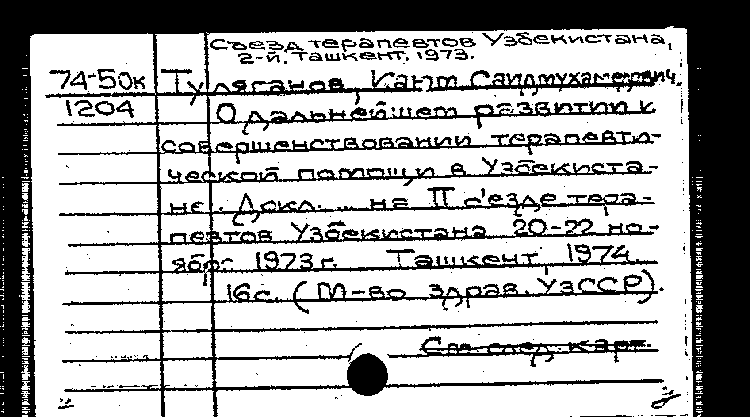 Съезд терапевтов Узбекистана,
2-й. Ташкент, 1973.
74-50к Туляганов, Каюм Саидмухамедович.
1204 О дальнейшем развитии и
совершенствовании терапевти-
ческой помощи в Узбекиста-
не. Докл. ... на II с'езде тера-
певтов Узбекистана 20-22 но-
ября 1973 г. Ташкент, 1974.
16 с. (М-во здрав. УзССР).
См. след. карт.